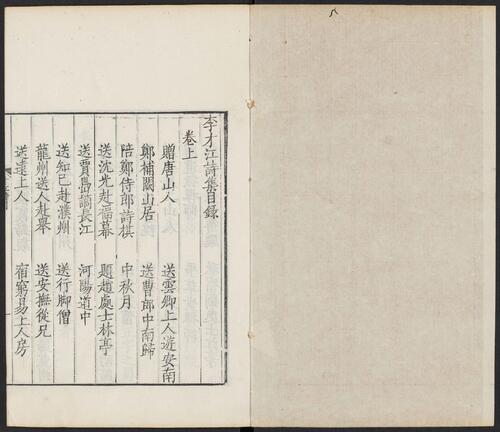 李才江詩集目録
卷上
贈唐山人 送雲卿上人遊安南
鄭補闕山居 送曹郎中南歸
陪鄭侍郎詩棋 中秋月
送沈先赴福幕 題趙處士林亭
送賈島謫長江 河陽道中
送知己赴濮州 送行脚僧
龍州送人赴舉 送安撫從兄
送遠上人 宿窮易上人房